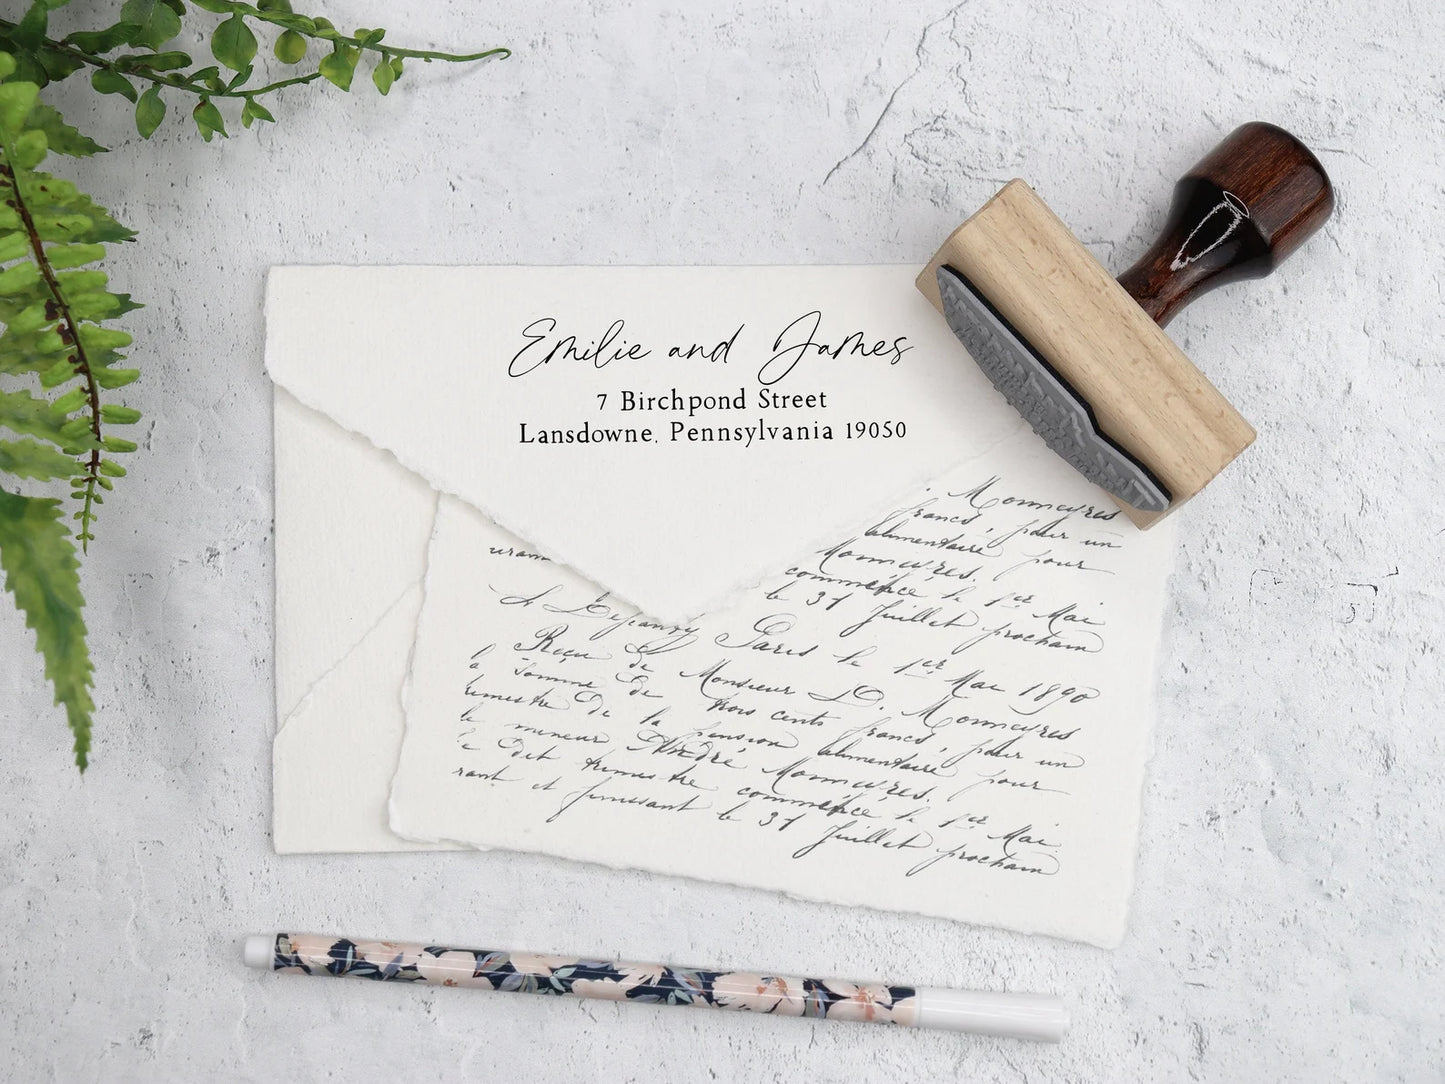 Emilie and James
7 Birchpond Street
Lansdowne, Pennsylvania 19050
Monneyres
francs, pour un
alimentaire pour
Monneyres.
commence le 1er Mai
le 31 Juillet prochain
Paris le 1er Mai 1890
Reçu de Monsieur D. Monneyres
a somme de trois cents francs, pour un
trimestre de la pension alimentaire pour
le mineur André Monneyres.
dit trimestre commence le 1er Mai
rant et finissant le 31 Juillet prochain